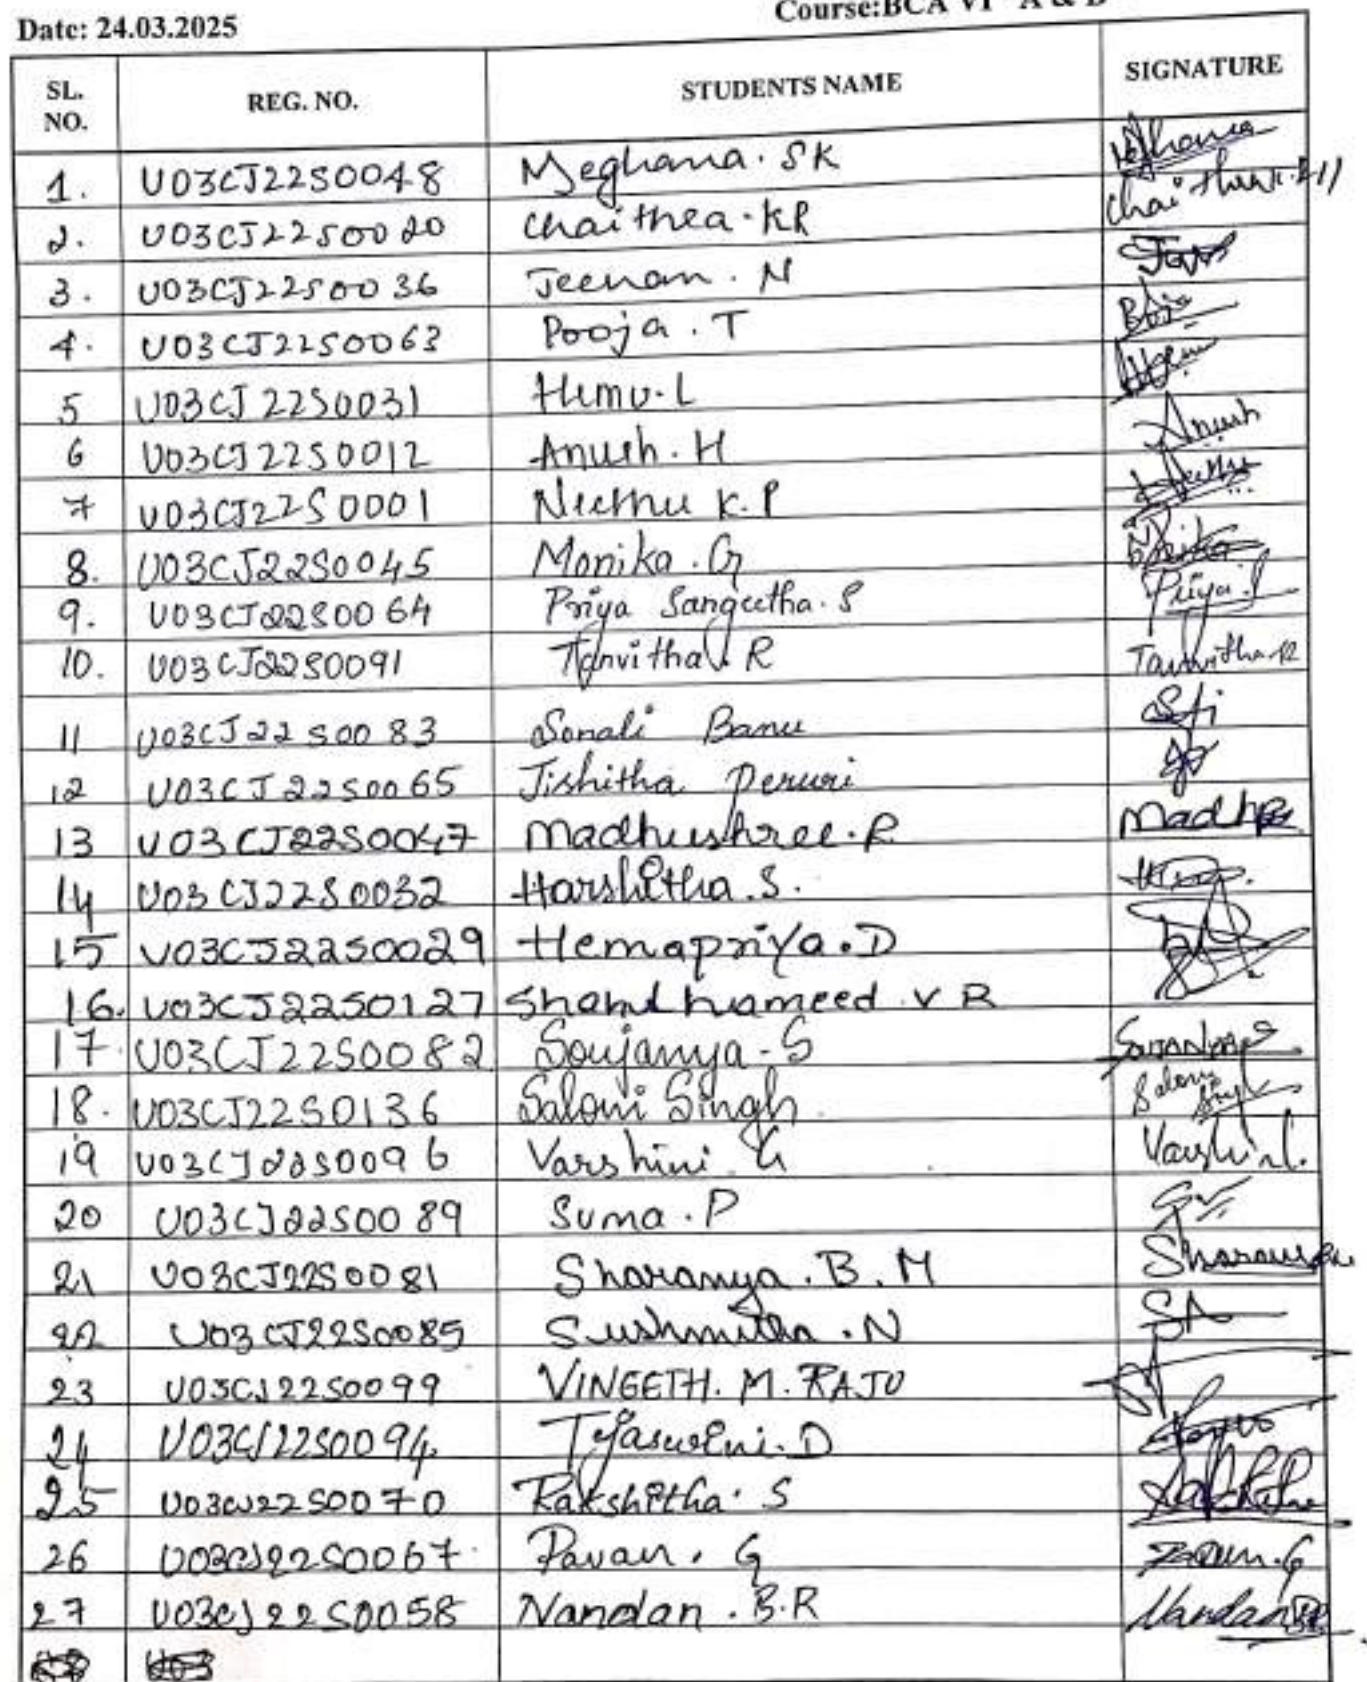 Date: 24.03.2025
Course:BCA VI A & B
SL. NO. REG. NO. STUDENTS NAME SIGNATURE
1. U03CJ22S0048 Meghana. SK
2. U03CJ22S0020 Chaithra. KR
3. U03CJ22S0036 Jeevan. N
4. U03CJ22S0063 Pooja. T
5 U03CJ22S0031 Hemu. L
6 U03CJ22S0012 Anush. H Anush
7 U03CJ22S0001 Neethu K. P
8. U03CJ22S0045 Monika. G
9. U03CJ22S0064 Priya Sangeetha. S Priya. S
10. U03CJ22S0091 Tanvitha. R Tanvitha.R
11 U03CJ22S0083 Sonali Banu
12 U03CJ22S0065 Jishitha Peruri
13 U03CJ22S0047 Madhushree. R
14 U03CJ22S0032 Harshitha. S.
15 U03CJ22S0029 Hemapriya. D
16. U03CJ22S0127 V R
17. U03CJ22S0082 Soujanya - S
18. U03CJ22S0136 Saloni Singh Saloni Singh
19 U03CJ22S0096 Varshini G
20 U03CJ22S0089 Suma. P
21 U03CJ22S0081 Sharanya. B. M
22 U03CJ22S0085 Sushmitha. N
23 U03CJ22S0099 VINEETH. M. RAJU
24 U03CJ22S0094 Tejaswini. D
25 U03CJ22S0070 Rakshitha. S
26 U03CJ22S0067 Pavan. G Pavan. G
27 U03CJ22S0058 Nandan. B.R Nandan BR